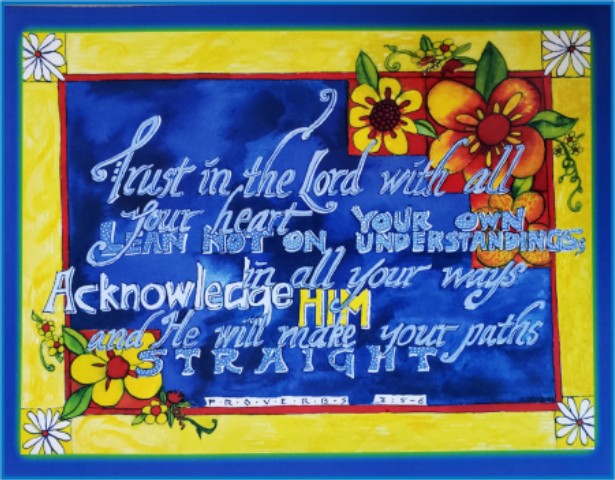 Trust in the Lord with all
your heart
LEAN NOT ON YOUR OWN UNDERSTANDINGS;
in all your ways
Acknowledge HIM
and He will make your paths
STRAIGHT
PROVERBS 3:5-6